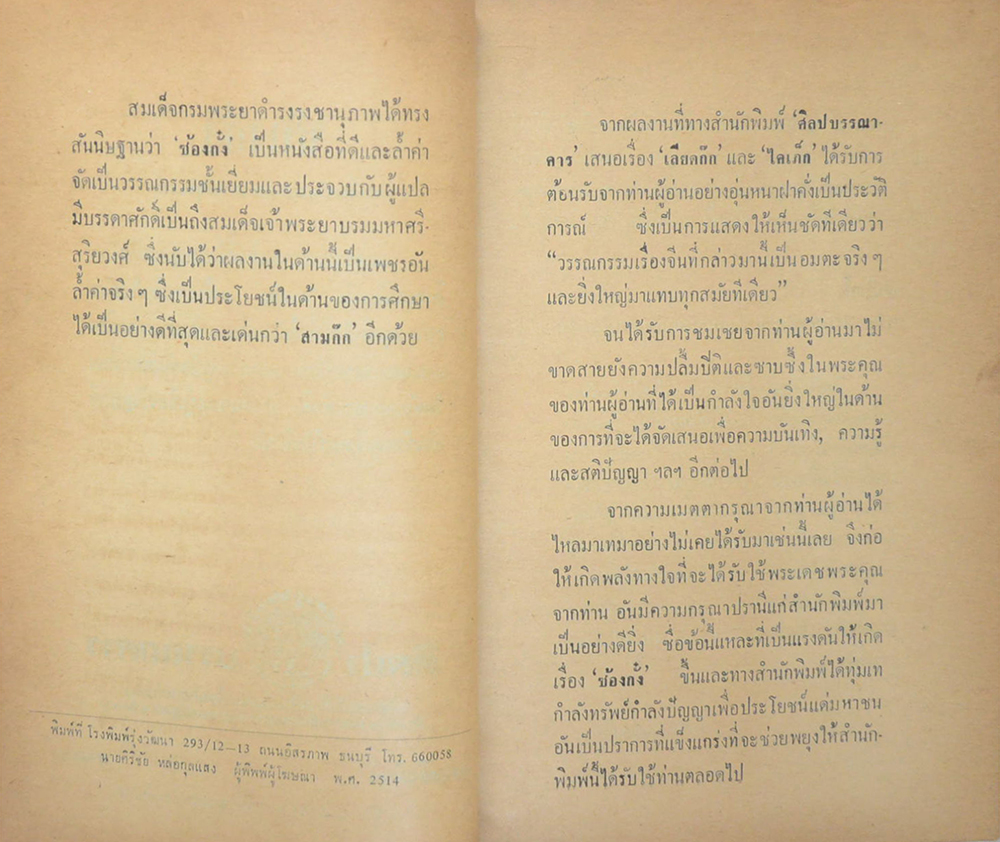 สมเด็จกรมพระยาดำรงรงชานุภาพได้ทรง
สันนิษฐานว่า ‘ซ้องกั๋ง’ เป็นหนังสือที่ดีและล้ำค่า
จัดเป็นวรรณกรรมชั้นเยี่ยมและประจวบกับผู้แปล
มีบรรดาศักดิ์เป็นถึงสมเด็จเจ้าพระยาบรมมหาศรี-
สุริยวงศ์ ซึ่งนับได้ว่าผลงานในด้านนี้เป็นเพชรอัน
ล้ำค่าจริง ๆ ซึ่งเป็นประโยชน์ในด้านของการศึกษา
ได้เป็นอย่างดีที่สุดและเด่นกว่า ‘สามก๊ก’ อีกด้วย
พิมพ์ที่ โรงพิมพ์รุ่งวัฒนา 293/12–13 ถนนอิสรภาพ ธนบุรี โทร. 660058
นายศิริชัย หล่อกุลแสง ผู้พิมพ์ผู้โฆษณา พ.ศ. 2514
จากผลงานที่ทางสำนักพิมพ์ ‘ศิลปบรรณา-
คาร’ เสนอเรื่อง ‘เลียดก๊ก’ และ ‘ไคเภ็ก’ ได้รับการ
ต้อนรับจากท่านผู้อ่านอย่างอุ่นหนาฝาคั่งเป็นประวัติ
การณ์ ซึ่งเป็นการแสดงให้เห็นชัดทีเดียวว่า
“วรรณกรรมเรื่องจีนที่กล่าวมานี้เป็นอมตะจริง ๆ
และยิ่งใหญ่มาแทบทุกสมัยทีเดียว”
จนได้รับการชมเชยจากท่านผู้อ่านมาไม่
ขาดสายยังความปลื้มปีติและซาบซึ้งในพระคุณ
ของท่านผู้อ่านที่ได้เป็นกำลังใจอันยิ่งใหญ่ในด้าน
ของการที่จะได้จัดเสนอเพื่อความบันเทิง, ความรู้
และสติปัญญา ฯลฯ อีกต่อไป
จากความเมตตากรุณาจากท่านผู้อ่านได้
ไหลมาเทมาอย่างไม่เคยได้รับมาเช่นนี้เลย จึงก่อ
ให้เกิดพลังทางใจที่จะได้รับใช้พระเดชพระคุณ
จากท่าน อันมีความกรุณาปรานีแก่สำนักพิมพ์มา
เป็นอย่างดียิ่ง ซื่อข้อนี้แหละที่เป็นแรงดันให้เกิด
เรื่อง ‘ซ้องกั๋ง’ ขึ้นและทางสำนักพิมพ์ได้ทุ่มเท
กำลังทรัพย์กำลังปัญญาเพื่อประโยชน์แด่มหาชน
อันเป็นปราการที่แข็งแกร่งที่จะช่วยพยุงให้สำนัก-
พิมพ์นี้ได้รับใช้ท่านตลอดไป